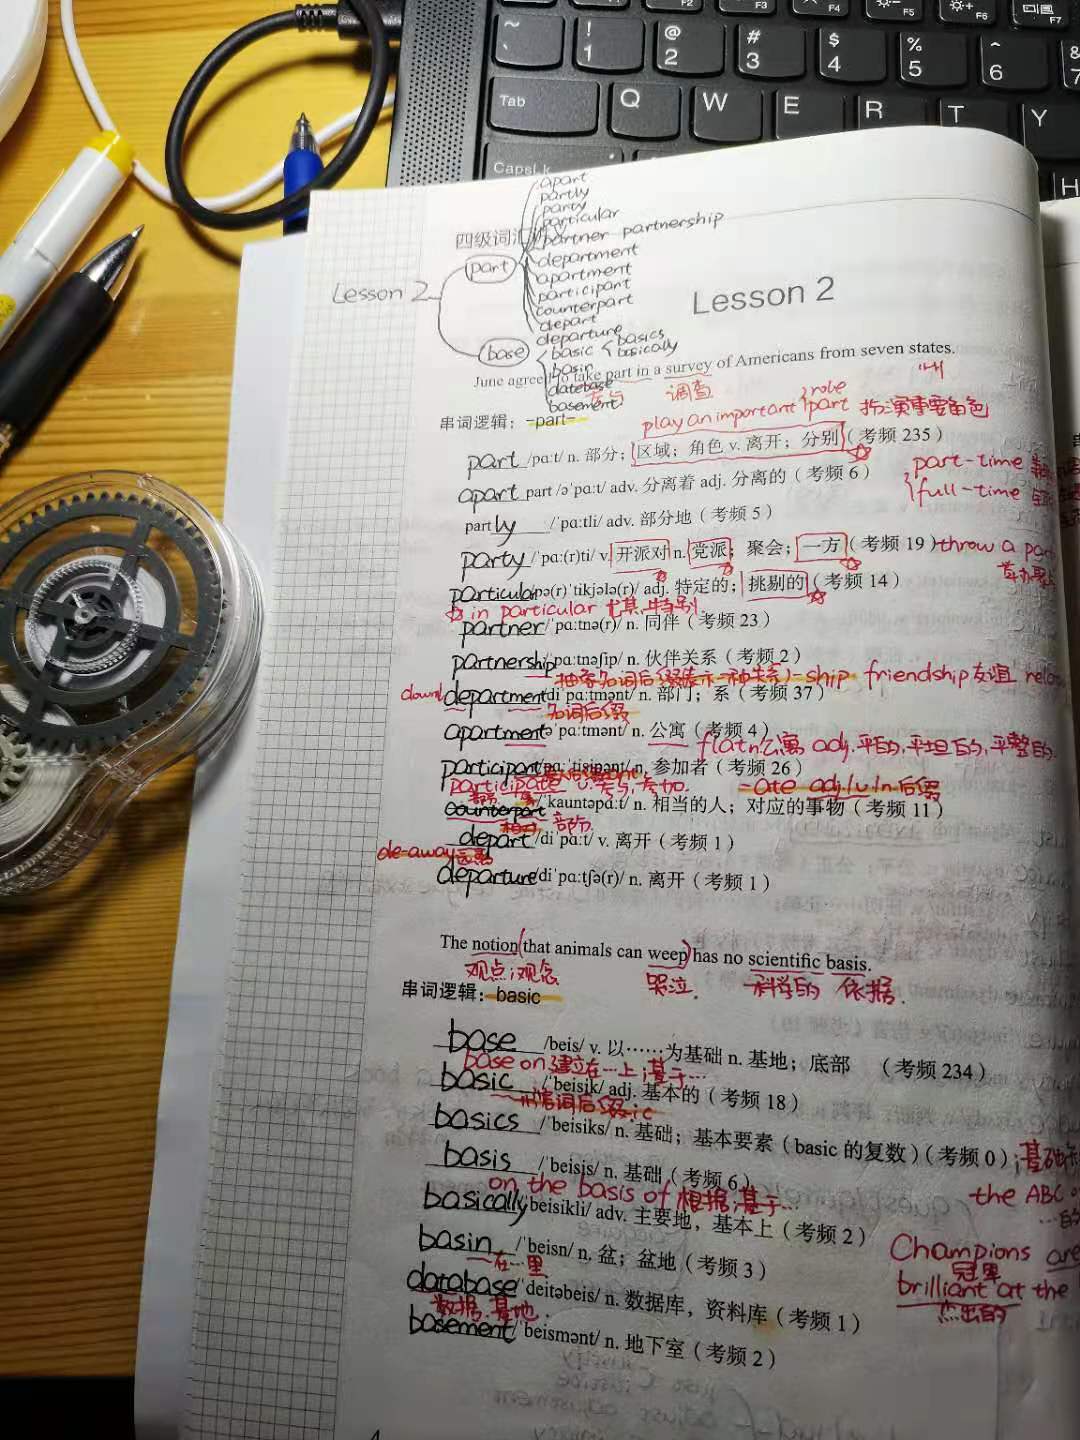 F2
F3
F4
F5
F6
F7
~
`
!
1
@
2
#
3
$
4
%
5
^
6
&
7
Tab
Q
W
E
R
T
Y
H
apart
partly
party
particular
四级词汇
partner partnership
department
apartment
participant
counterpart
depart
departure
part
Lesson 2
base
basic basics
basically
basin
database
basement
Lesson 2
June agreed to take part in a survey of Americans from seven states.
参与
调查
州
串词逻辑：-part-
play an important role
part 扮演重要角色
part /pɑ:t/ n. 部分；区域；角色 v. 离开；分别（考频 235）
part-time
full-time
apart part /ə'pɑ:t/ adv. 分离着 adj. 分离的（考频 6）
partly /'pɑ:tli/ adv. 部分地（考频 5）
party /'pɑ:(r)ti/ v. 开派对 n. 党派；聚会；一方（考频 19）throw a
particular pə(r)'tikjələ(r)/ adj. 特定的；挑剔的（考频 14）
in particular 尤其,特别
partner /'pɑ:tnə(r)/ n. 同伴（考频 23）
partnership 'pɑ:tnəʃip/ n. 伙伴关系（考频 2）
抽象名词后缀表示一种关系 -ship friendship 友谊
department di'pɑ:tmənt/ n. 部门；系（考频 37）
名词后缀
apartment ə'pɑ:tmənt/ n. 公寓（考频 4）
flat n.公寓 adj.平的,平坦的,平整的
participant pɑ:'tisipənt/ n. 参加者（考频 26）
participate v.参与,参加. -ate adj./v./n.后缀
counterpart /'kauntəpɑ:t/ n. 相当的人；对应的事物（考频 11）
相对 部分
depart /di'pɑ:t/ v. 离开（考频 1）
de-away远离
departure /di'pɑ:tʃə(r)/ n. 离开（考频 1）
The notion (that animals can weep) has no scientific basis.
观点；观念 哭泣. 科学的 依据.
串词逻辑：-basic
base /beis/ v. 以……为基础 n. 基地；底部 （考频 234）
base on 建立在…上；基于…
basic /'beisik/ adj. 基本的（考频 18）
形容词后缀ic
basics /'beisiks/ n. 基础；基本要素（basic 的复数）（考频 0）
the ABC
basis /'beisis/ n. 基础（考频 6）
on the basis of 根据；基于…
basically 'beisikli/ adv. 主要地，基本上（考频 2）
Champions are
冠军
basin /'beisn/ n. 盆；盆地（考频 3）
在…里
brilliant at the
杰出的
database /'deitəbeis/ n. 数据库，资料库（考频 1）
数据.基地.
basement /'beismənt/ n. 地下室（考频 2）